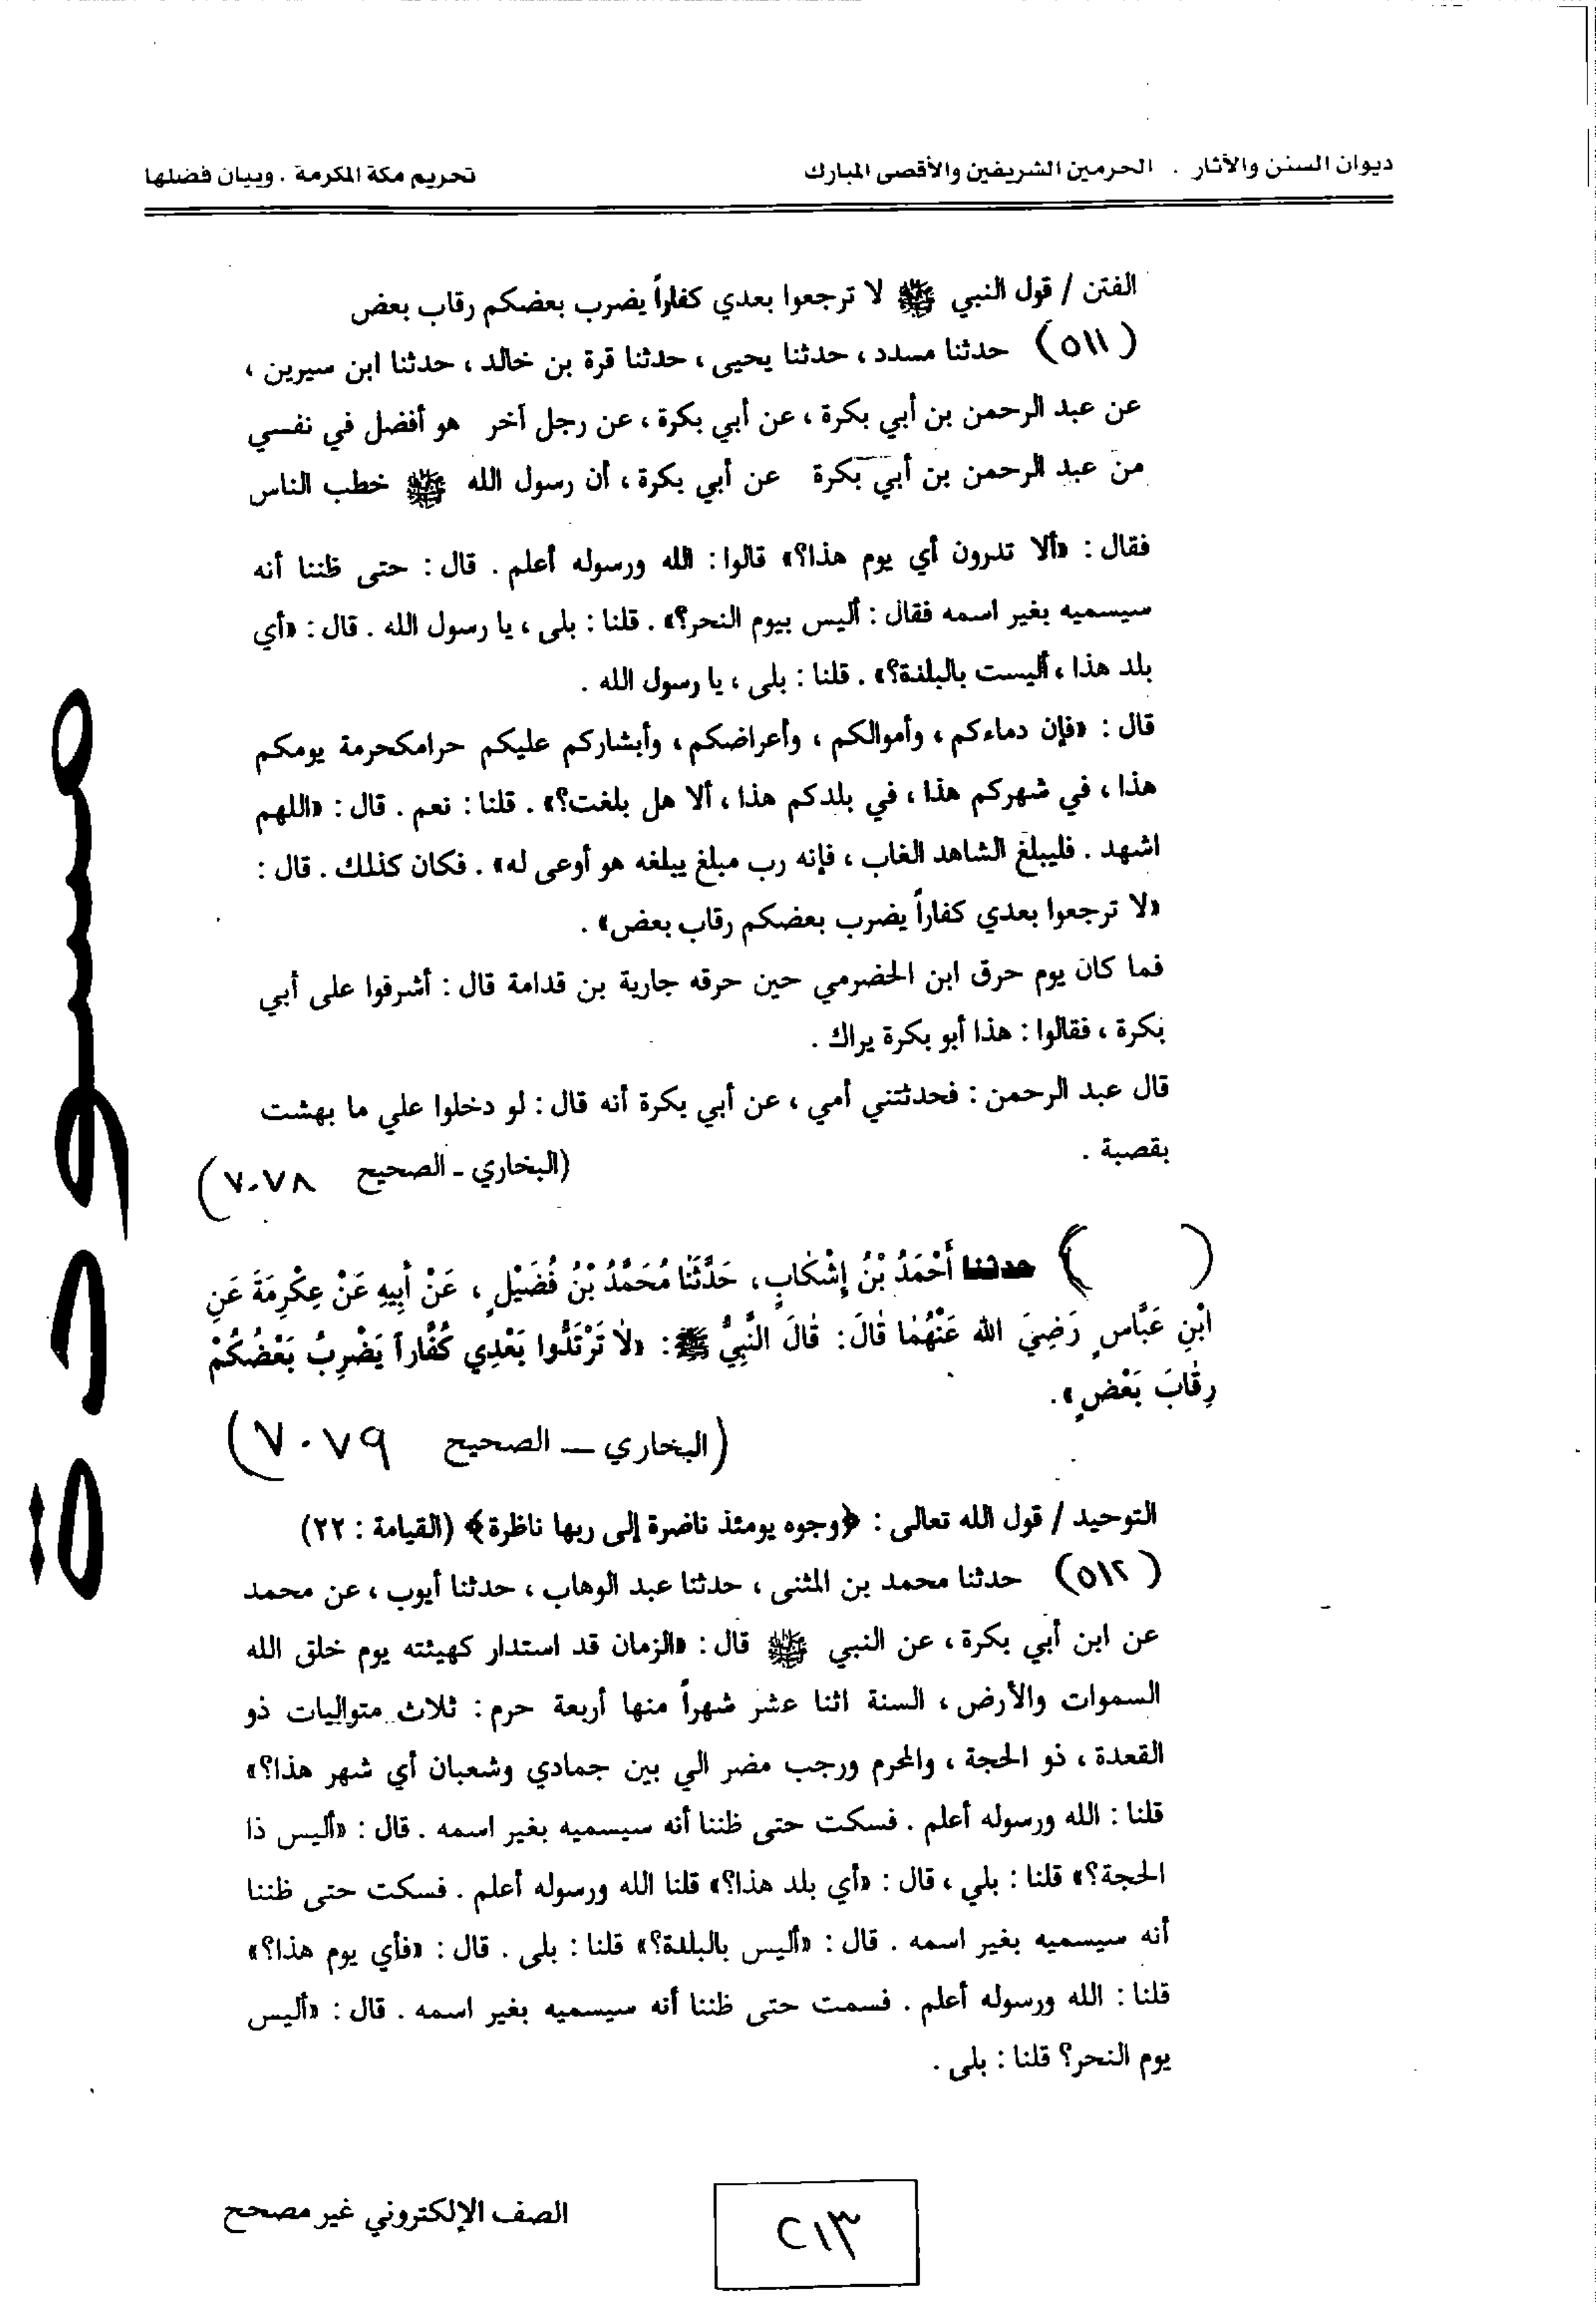 ديوان السنن والآثار . الحرمين الشريفين والأقصى المبارك
تحريم مكة المكرمة . وبيان فضلها
الفتن / قول النبي ﷺ لا ترجعوا بعدي كفاراً يضرب بعضكم رقاب بعض
(٥١١) حدثنا مسدد ، حدثنا يحيى ، حدثنا قرة بن خالد ، حدثنا ابن سيرين ،
عن عبد الرحمن بن أبي بكرة ، عن أبي بكرة ، عن رجل آخر هو أفضل في نفسي
من عبد الرحمن بن أبي بكرة عن أبي بكرة ، أن رسول الله ﷺ خطب الناس
فقال : «ألا تدرون أي يوم هذا؟» قالوا : الله ورسوله أعلم . قال : حتى ظننا أنه
سيسميه بغير اسمه فقال : أليس بيوم النحر؟» . قلنا : بلى ، يا رسول الله . قال : «أي
بلد هذا ، أليست بالبلدة؟» . قلنا : بلى ، يا رسول الله .
قال : «فإن دماءكم ، وأموالكم ، وأعراضكم ، وأبشاركم عليكم حرامكحرمة يومكم
هذا ، في شهركم هذا ، في بلدكم هذا ، ألا هل بلغت؟» . قلنا : نعم . قال : «اللهم
اشهد . فليبلغ الشاهد الغاب ، فإنه رب مبلغ يبلغه هو أوعى له» . فكان كذلك . قال :
«لا ترجعوا بعدي كفاراً يضرب بعضكم رقاب بعض» .
فما كان يوم حرق ابن الحضرمي حين حرقه جارية بن قدامة قال : أشرفوا على أبي
بكرة ، فقالوا : هذا أبو بكرة يراك .
قال عبد الرحمن : فحدثتني أمي ، عن أبي بكرة أنه قال : لو دخلوا علي ما بهشت
بقصبة .
(البخاري - الصحيح ٧٠٧٨)
( ) حدثنا أَحْمَدُ بْنُ إِشْكَابٍ، حَدَّثَنَا مُحَمَّدُ بْنُ فُضَيْلٍ ، عَنْ أَبِيهِ عَنْ عِكْرِمَةَ عَنِ
ابْنِ عَبَّاسٍ رَضِيَ الله عَنْهُمَا قَالَ: قَالَ النَّبِيُّ ﷺ: «لَا تَرْتَدُّوا بَعْدِي كُفَّاراً يَضْرِبُ بَعْضُكُمْ
رِقَابَ بَعْضٍ».
(البخاري – الصحيح ٧٠٧٩)
التوحيد / قول الله تعالى : ﴿وجوه يومئذ ناضرة إلى ربها ناظرة﴾ (القيامة : ٢٢)
(٥١٢) حدثنا محمد بن المثنى ، حدثنا عبد الوهاب ، حدثنا أيوب ، عن محمد
عن ابن أبي بكرة ، عن النبي ﷺ قال : «الزمان قد استدار كهيئته يوم خلق الله
السموات والأرض ، السنة اثنا عشر شهراً منها أربعة حرم : ثلاث متواليات ذو
القعدة ، ذو الحجة ، والمحرم ورجب مضر الي بين جمادي وشعبان أي شهر هذا؟»
قلنا : الله ورسوله أعلم . فسكت حتى ظننا أنه سيسميه بغير اسمه . قال : «أليس ذا
الحجة؟» قلنا : بلي ، قال : «أي بلد هذا؟» قلنا الله ورسوله أعلم . فسكت حتى ظننا
أنه سيسميه بغير اسمه . قال : «أليس بالبلدة؟» قلنا : بلى . قال : «فأي يوم هذا؟»
قلنا : الله ورسوله أعلم . فسمت حتى ظننا أنه سيسميه بغير اسمه . قال : «أليس
يوم النحر؟ قلنا : بلى .
مسودة
٢١٣
الصف الإلكتروني غير مصحح